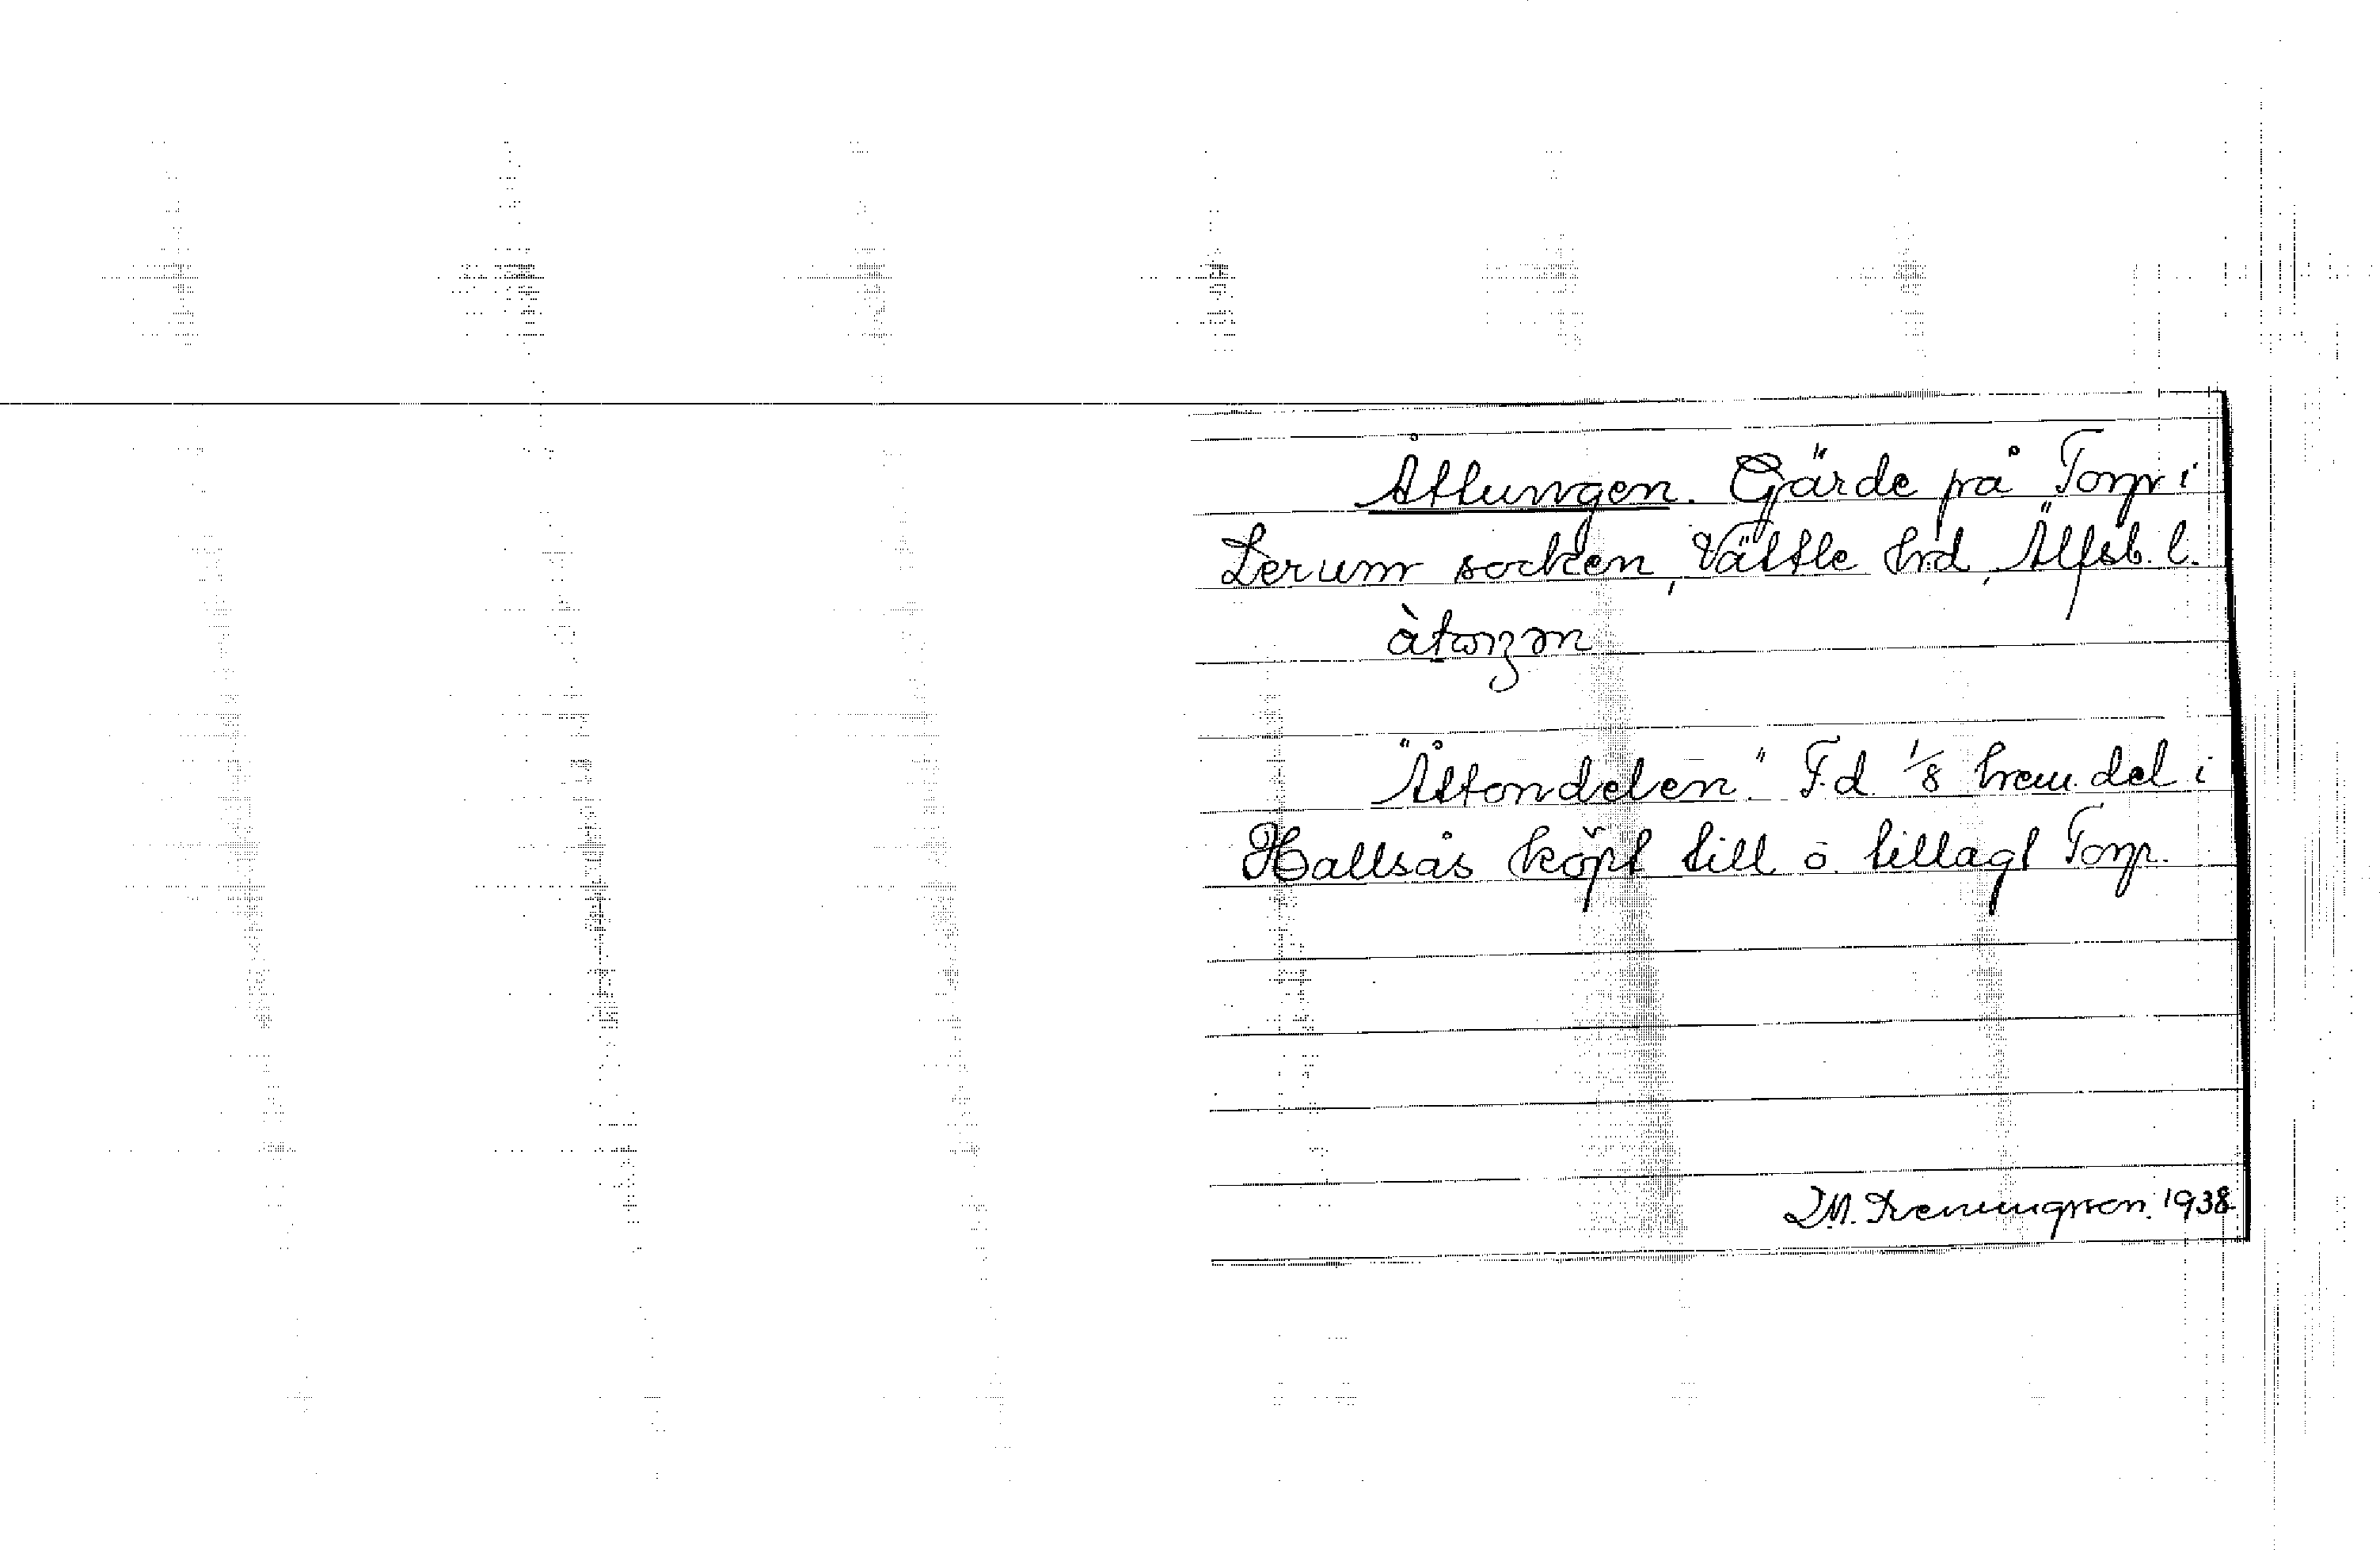 Åttungen. Gärde på Torp i
Lerum socken, Vättle hrd, Älfsb. l.
àtoŋən
"Åttondelen". F.d. 1/8 hem. del i
Hallsås köpt till o. tillagt Torp.
1938